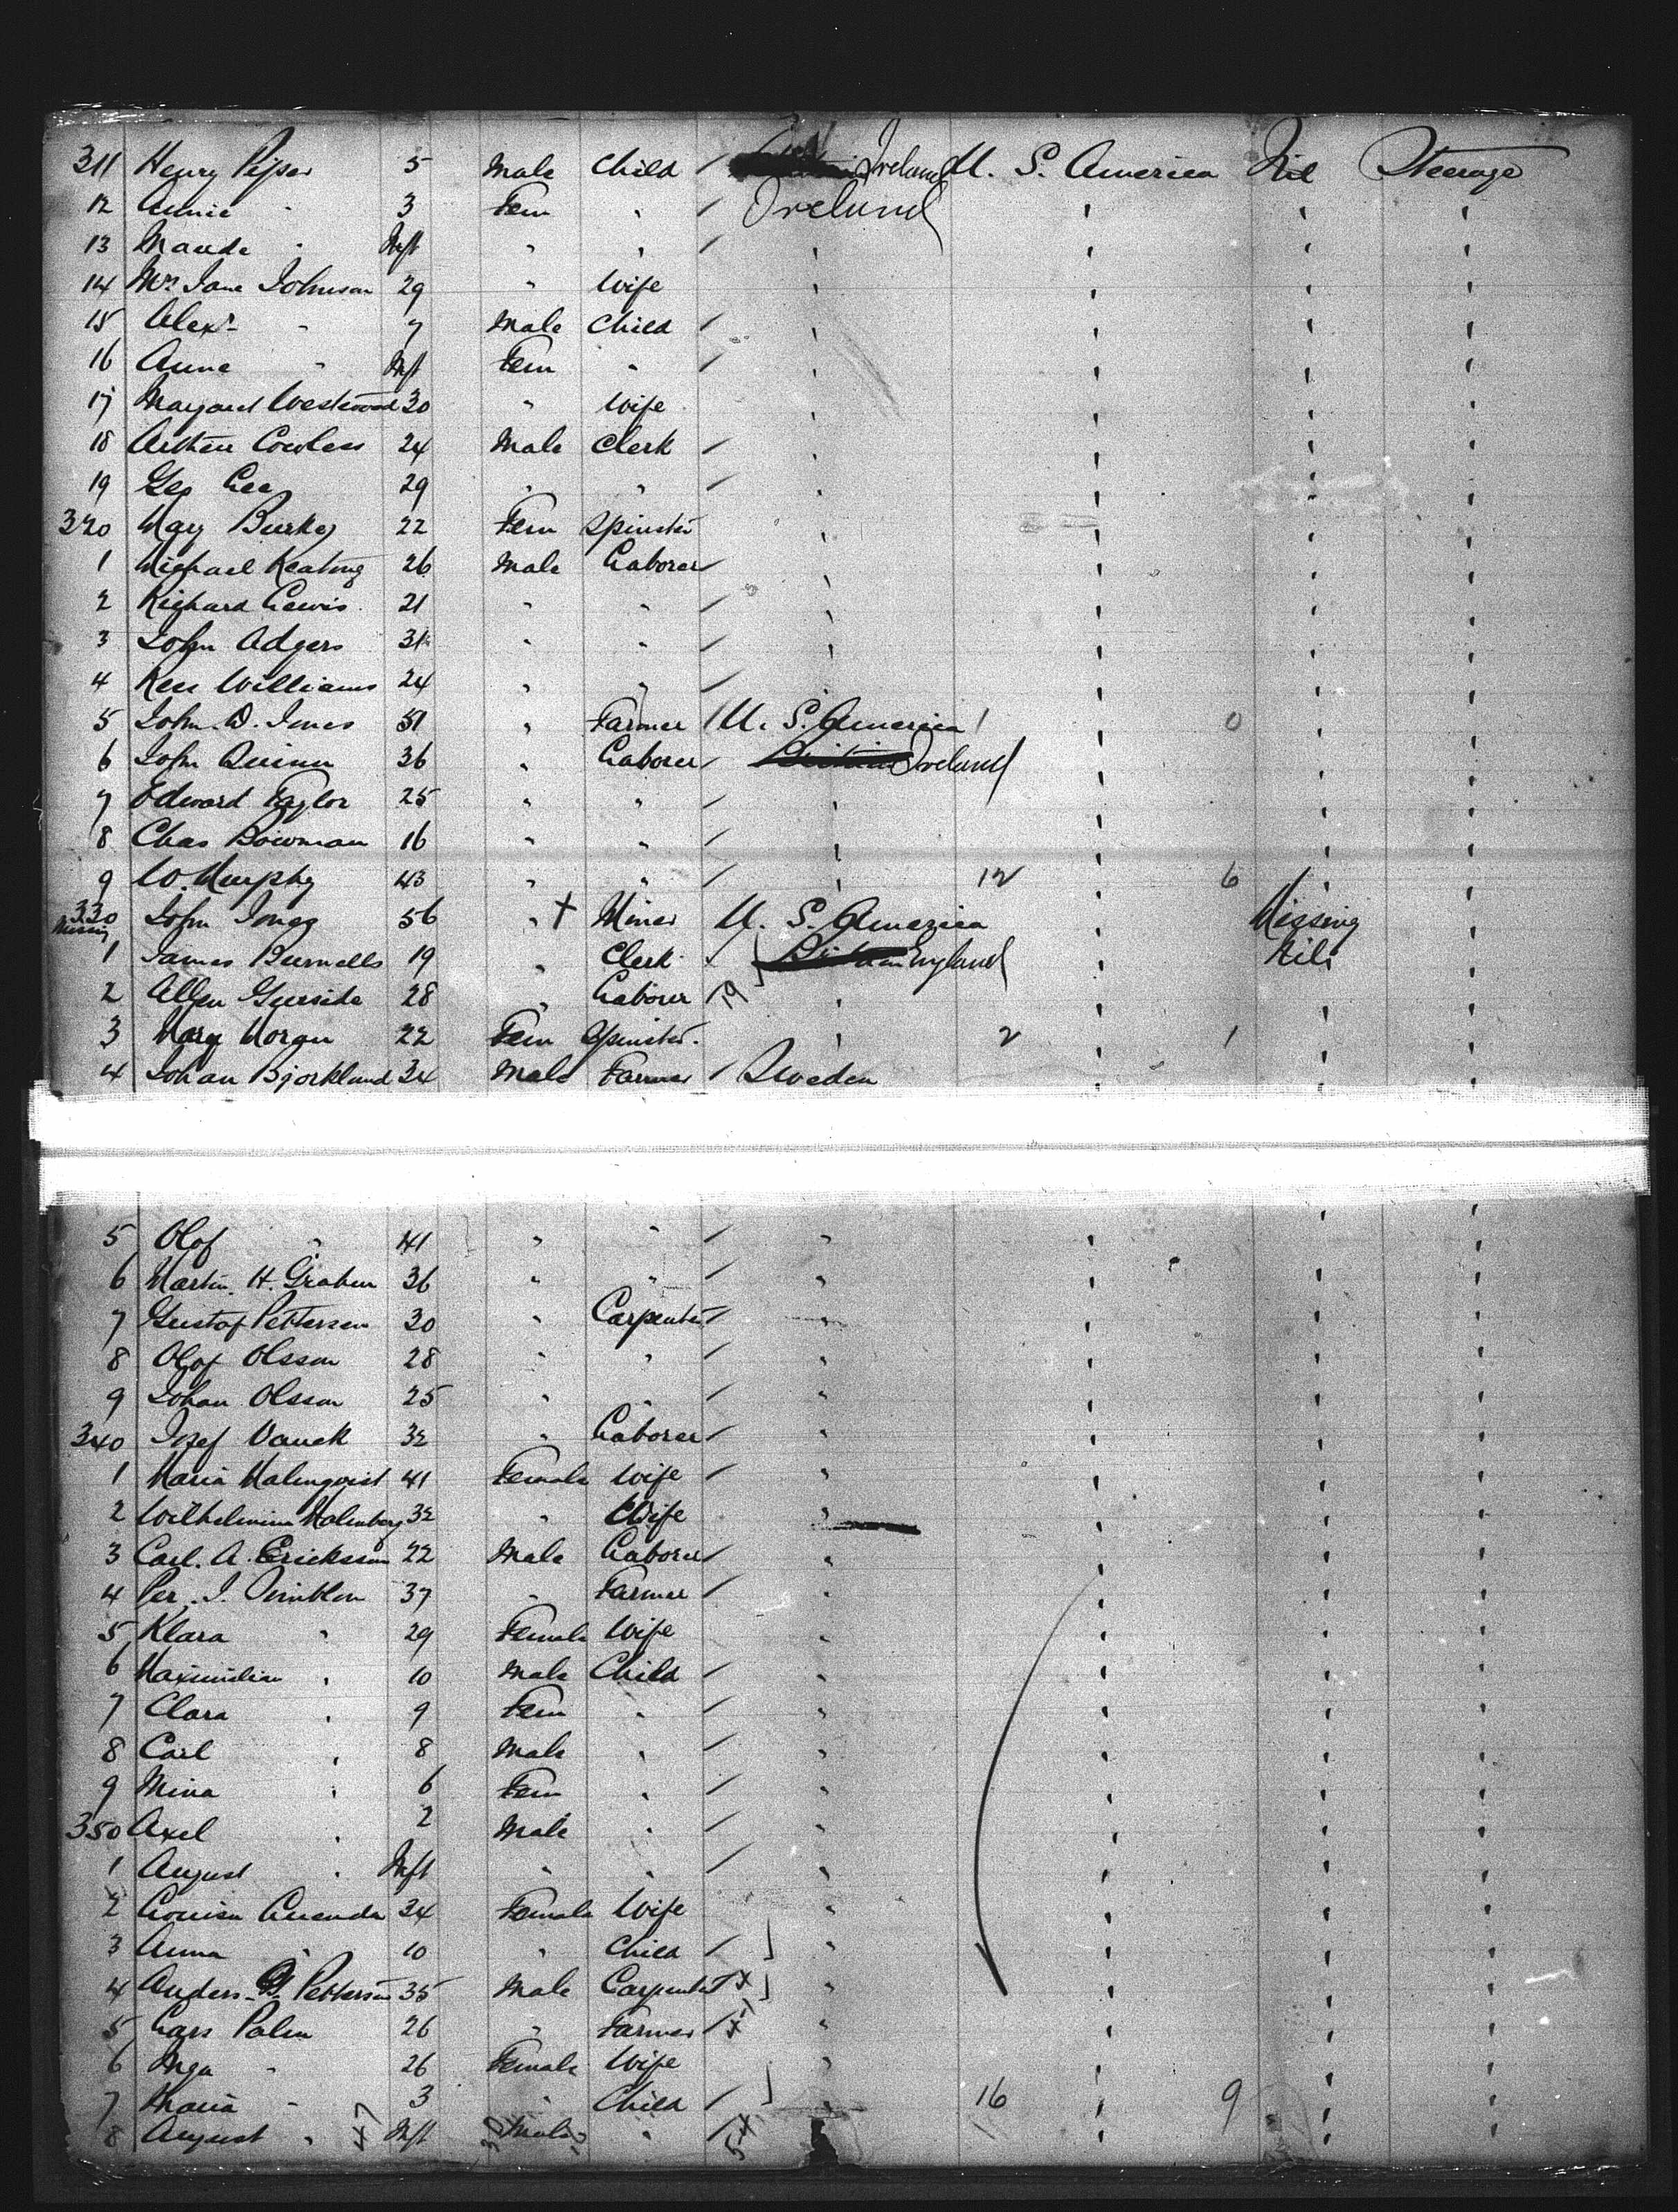 311 Henry Piper 5 Male Child / Ireland U. S. America Nil Steerage
12 Annie " 3 Fem " / Ireland " " "
13 Maude " Inft " " / " " " "
14 Mrs Jane Johnson 29 " Wife " " " "
15 Alexr " 7 Male Child / " " " "
16 Anne " Inft Fem " / " " " "
17 Margaret Westwood 30 " Wife " " " "
18 Arthur Cowless 24 Male Clerk / " " " "
19 Geo Lee 29 " " / " " " "
320 Mary Burke 22 Fem Spinster " " " "
1 Michael Keating 26 Male Laborer / " " " "
2 Richard Lewis 21 " " / " " " "
3 John Adgers 31 " " / " " " "
4 Rees Williams 24 " " / " " " "
5 John D. Jones 51 " Farmer / U. S. America 1 " 0 " "
6 John Quinn 36 " Laborer / Ireland " " "
7 Edward Taylor 25 " " / " " " "
8 Chas Bowman 16 " " / " " " "
9 W. Murphy 43 " " / " 12 " 6 " "
330 Missing John Jones 56 " + Miner U. S. America " Missing "
1 James Burnells 19 " Clerk / England " Nil "
2 Allen 28 " Laborer / 19 " " " "
3 Mary Moran 22 Fem Spinster. " 2 " 1 " "
4 Johan Bjorklund 34 Male Farmer / Sweden " " "
5 Olof " 41 " " / " " " "
6 Martin H. Graben 36 " " / " " " "
7 Gustof Petterson 30 " Carpenter / " " " "
8 Olof Olsson 28 " " / " " " "
9 Johan Olsson 25 " " / " " " "
340 Josef Vanek 32 " Laborer / " " " "
1 Maria Malmqvist 41 Female Wife / " " " "
2 Wilhelmina Malmberg 32 " Wife " " " "
3 Carl. A. Ericksson 22 Male Laborer / " " " "
4 Per. J. 37 " Farmer / " " " "
5 Klara " 29 Female Wife " " " "
6 Maximilian " 10 Male Child / " " " "
7 Clara " 9 Fem " / " " " "
8 Carl " 8 Male " / " " " "
9 Mina " 6 Fem " / " " " "
350 Axel " 2 Male " / " " " "
1 August " Inft " " / " " " "
2 Louisa 34 Female Wife " " " "
3 Anna " 10 " Child / " " " "
4 Anders. Petterson 35 Male Carpenter " " " "
5 Lars Palm 26 " Farmer / " " " "
6 Inga " 26 Female Wife " " " "
7 Maria " 3 " Child / " 16 " 9 " "
8 August " 47 Inft Male " / 54 " " "